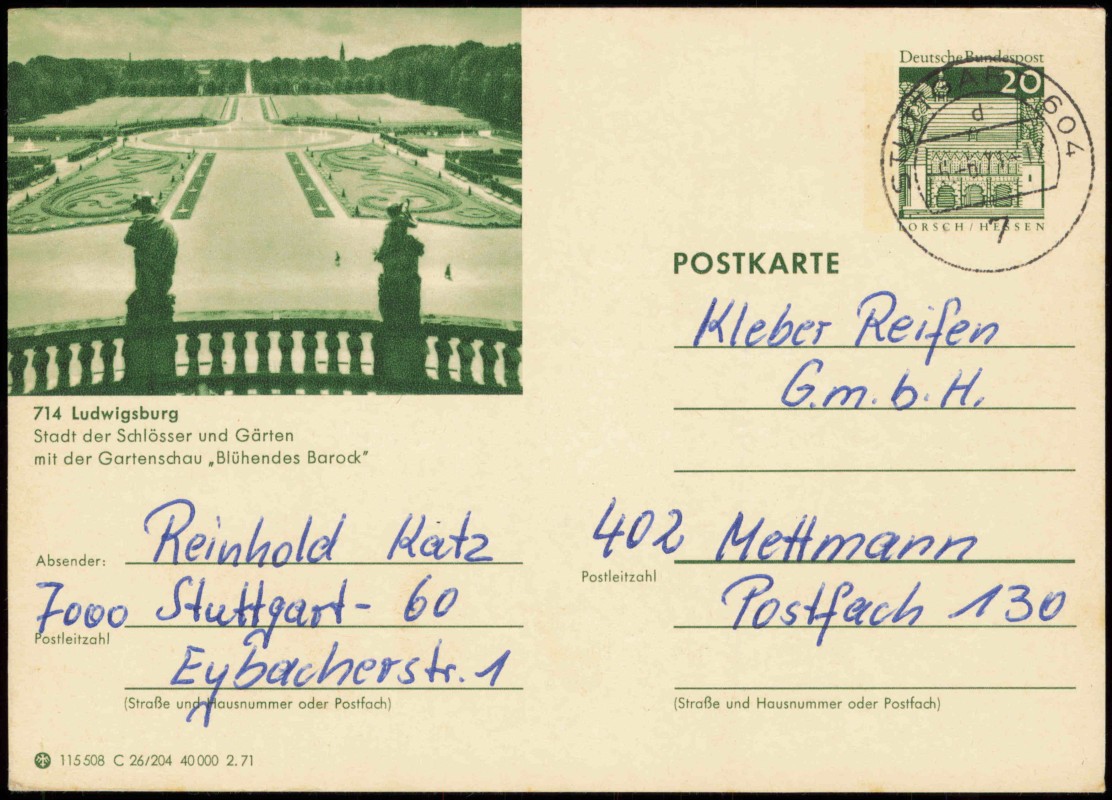 Deutsche Bundespost
20
STUTTGART 604
d
7
LORSCH / HESSEN
POSTKARTE
Kleber Reifen
G.m.b.H.
714 Ludwigsburg
Stadt der Schlösser und Gärten
mit der Gartenschau „Blühendes Barock"
Absender: Reinhold Katz
7000 Stuttgart- 60
Postleitzahl
Eybacherstr. 1
(Straße und Hausnummer oder Postfach)
402 Mettmann
Postleitzahl
Postfach 130
(Straße und Hausnummer oder Postfach)
115 508 C 26/204 40 000 2.71